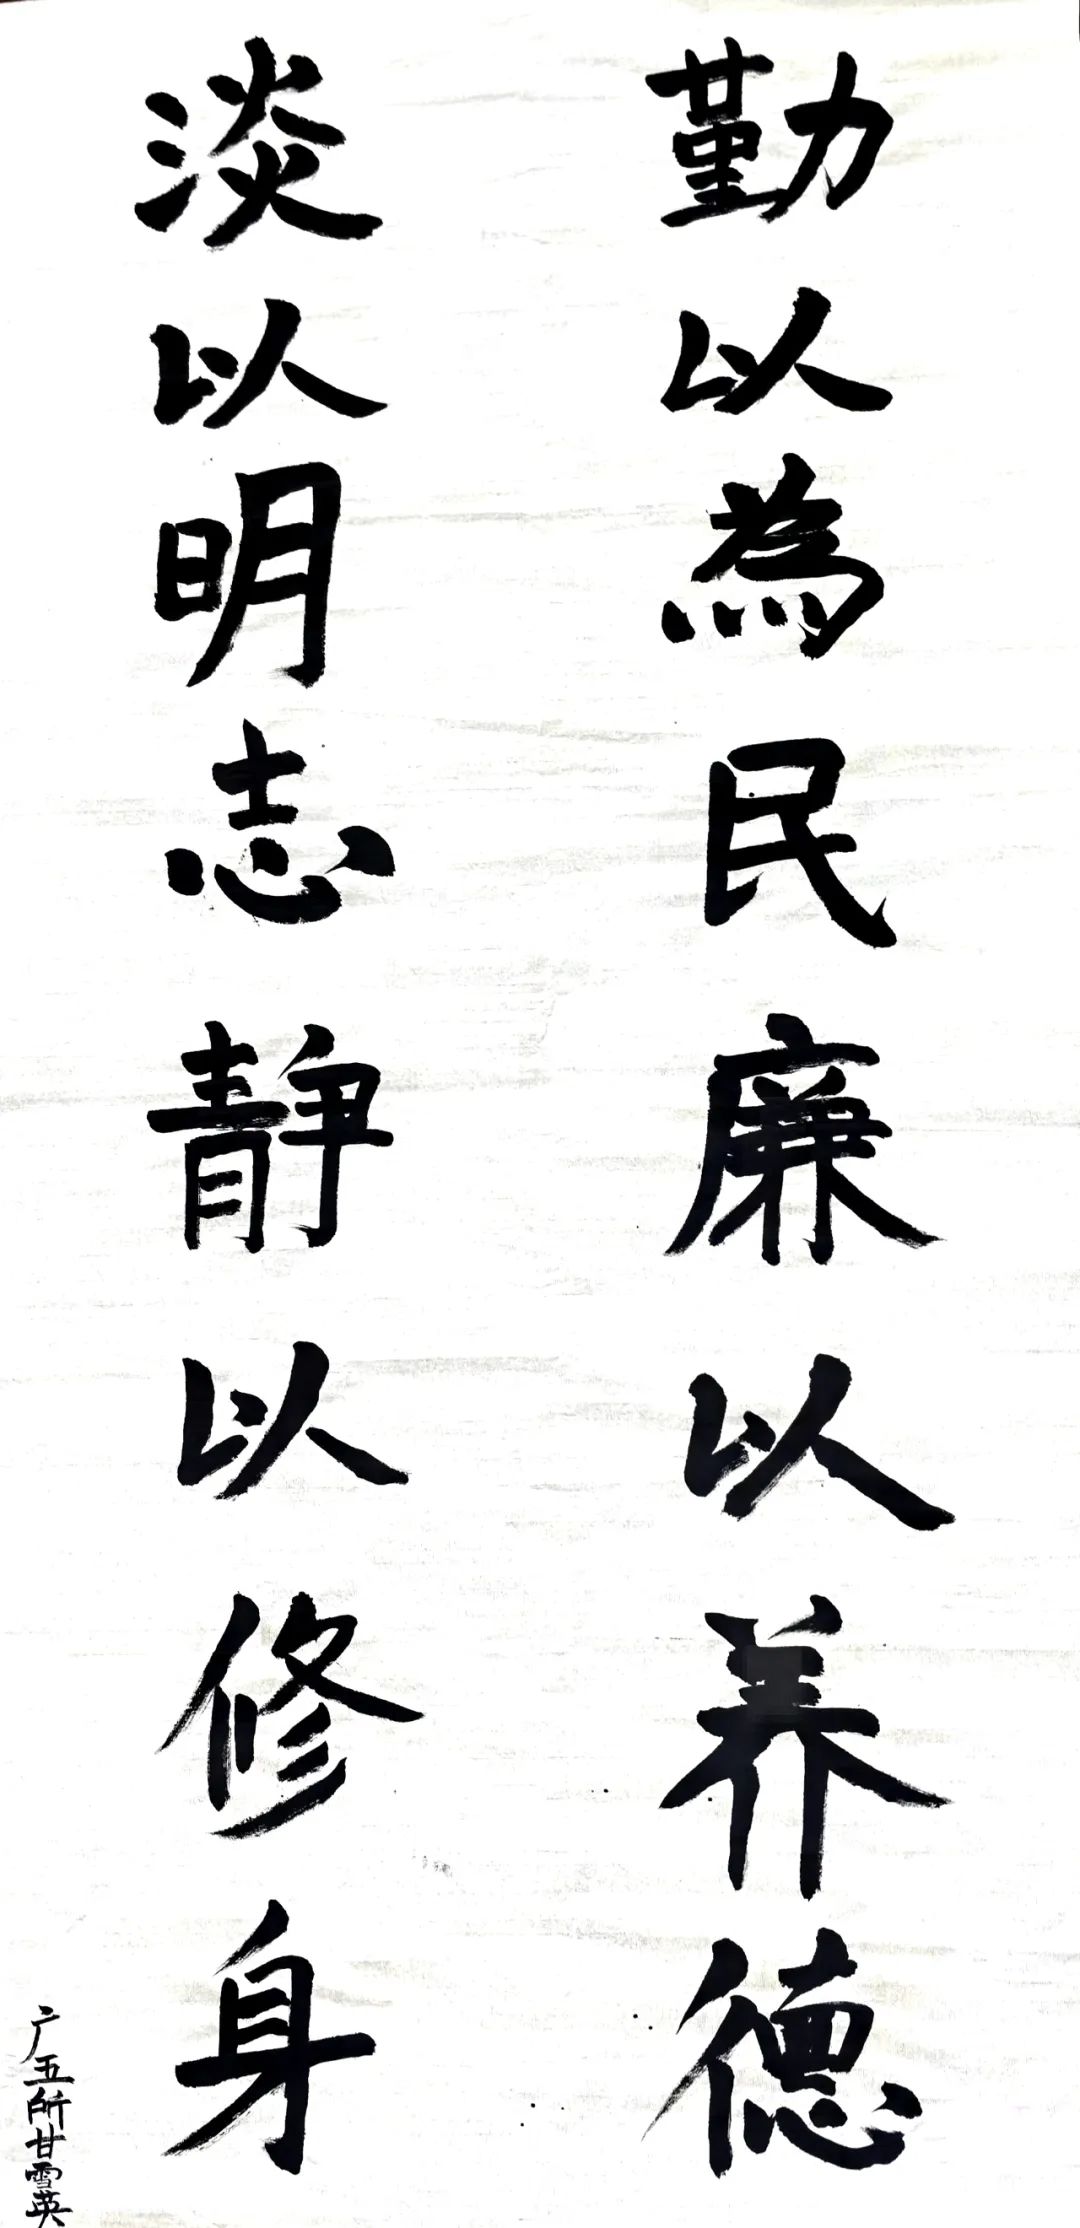 勤以為民廉以养德
淡以明志静以修身
广五所甘雪英